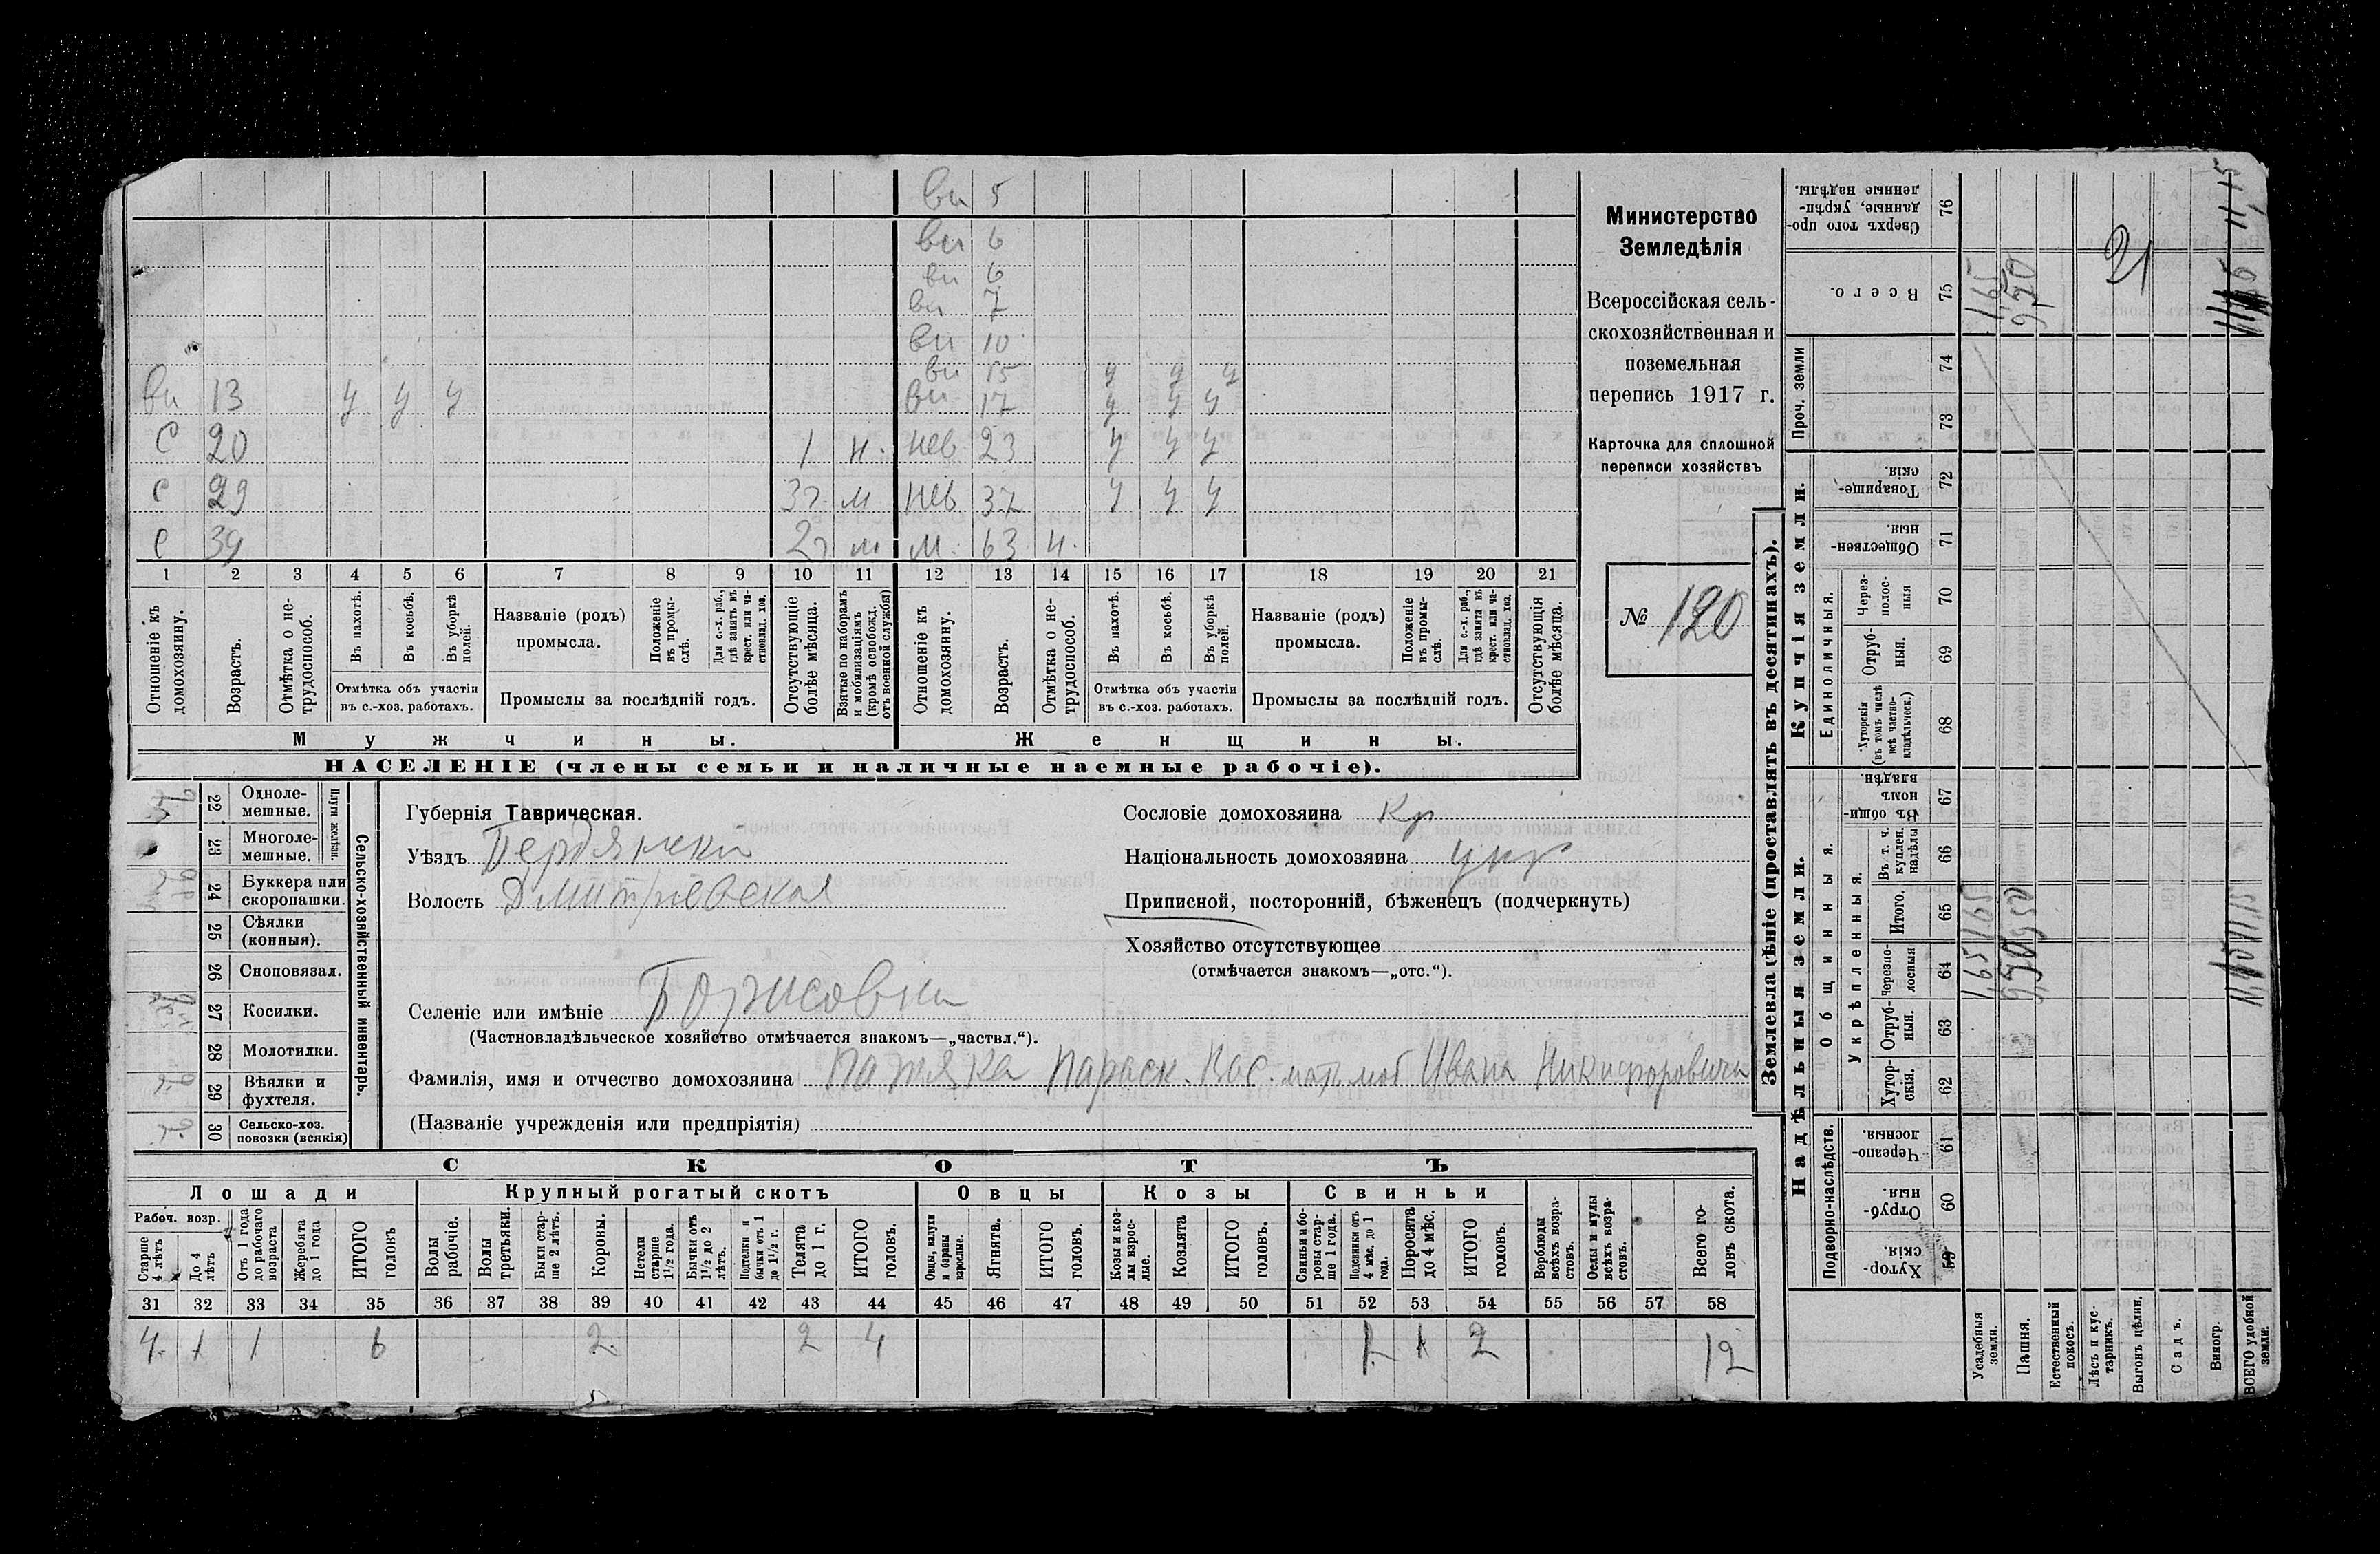 ви 5
ви 6
ви 6
ви 7
ви 10
ви 15 у у у
ви 13 у у у ви 17 у у у
С 20 1 н. нев 23 у у у
с 29 3 г. м нев 37 у у у
с 39 2 г м м. 63 н.
1 2 3 4 5 6 7 8 9 10 11 12 13 14 15 16 17 18 19 20 21
Отношеніе къ домохозяину.
Возрастъ.
Отмѣтка о нетрудоспособ.
Въ пахотѣ.
Въ косьбѣ.
Въ уборкѣ полей.
Отмѣтка объ участіи въ с.-хоз. работахъ.
Названіе (родъ) промысла.
Положеніе въ промыслѣ.
Для с.-х. раб., гдѣ занятъ въ крест. или частновлад. хоз.
Промыслы за послѣдній годъ.
Отсутствующіе болѣе мѣсяца.
Взятые по наборамъ и мобилизаціямъ (кромѣ освобожд. отъ военной службы)
Отношеніе къ домохозяину.
Возрастъ.
Отмѣтка о нетрудоспособ.
Въ пахотѣ.
Въ косьбѣ.
Въ уборкѣ полей.
Отмѣтка объ участіи въ с.-хоз. работахъ.
Названіе (родъ) промысла.
Положеніе въ промыслѣ.
Для с.-х. раб., гдѣ занята въ крест. или частновлад. хоз.
Промыслы за послѣдній годъ.
Отсутствующія болѣе мѣсяца.
Мужчины. Женщины.
НАСЕЛЕНІЕ (члены семьи и наличные наемные рабочіе).
Министерство
Земледѣлія
Всероссійская сель-
скохозяйственная и
поземельная
перепись 1917 г.
Карточка для сплошной
переписи хозяйствъ
№ 120
22 Однолемешные.
23 Многолемешные.
Плуги желѣзн.
24 Буккера или скоропашки.
25 Сѣялки (конныя).
26 Сноповязал.
27 Косилки.
28 Молотилки.
29 Вѣялки и фухтеля.
30 Сельско-хоз. повозки (всякія)
Сельско-хозяйственный инвентарь.
Губернія Таврическая.
Уѣздъ Бердянски
Волость Дмитріевская
Селеніе или имѣніе Борисовка
(Частновладѣльческое хозяйство отмѣчается знакомъ—„частвл.“).
Фамилія, имя и отчество домохозяина Параск. Вас. Ивана Никифоровича
(Названіе учрежденія или предпріятія)
Сословіе домохозяина Кр
Національность домохозяина укр
Приписной, посторонній, бѣженецъ (подчеркнуть)
Хозяйство отсутствующее
(отмѣчается знакомъ—„отс.“).
СКОТЪ
Лошади Крупный рогатый скотъ Овцы Козы Свиньи
Рабоч. возр.
Старше 4 лѣтъ
До 4 лѣтъ
Отъ 1 года до рабочаго возраста
Жеребята до 1 года
ИТОГО головъ
Волы рабочіе.
Волы третьяки.
Быки старше 2 лѣтъ.
Коровы.
Нетели старше 1½ года.
Бычки отъ 1½ до 2 лѣтъ.
Подтелки и бычки отъ 1 до 1½ г.
Телята до 1 г.
ИТОГО головъ.
Овцы, валухи и бараны взрослые.
Ягнята.
ИТОГО головъ.
Козы и козлы взрослые.
Козлята
ИТОГО головъ.
Свиньи и боровы старше 1 года.
Подсвинки отъ 4 мѣс. до 1 года.
Поросята до 4 мѣс.
ИТОГО головъ.
Верблюды всѣхъ возрастовъ.
Ослы и мулы всѣхъ возрастовъ.
Всего головъ скота.
31 32 33 34 35 36 37 38 39 40 41 42 43 44 45 46 47 48 49 50 51 52 53 54 55 56 57 58
4 1 1 6 2 2 4 1 1 2 12
Землевладѣніе (проставлять въ десятинахъ).
Надѣльныя земли.
Подворно-наслѣдств.
Хуторскія. 59
Отрубныя. 60
Черезполосныя. 61
Общинныя.
Укрѣпленныя.
Хуторскія. 62
Отрубныя. 63
Черезполосныя 64
Итого. 65
Въ т. ч. куплен. надѣлы 66
Въ общиномъ владѣн. 67
Купчія земли.
Единоличныя.
Хуторскія (въ томъ числѣ всѣ частновладѣльческ.) 68
Отрубныя. 69
Черезполосныя 70
Общественныя. 71
Товарищескія. 72
Проч. земли
73 74
Всего. 75
Сверхъ того проданные, укрѣпленные надѣлы. 76
Усадебныя земли. 1,65 1,65 1,65
Пашня. 9,50 9,50 9,50
Естественный покосъ.
Лѣсъ и кустарникъ.
Выгонъ цѣлин.
Садъ.
Виногр.
ВСЕГО удобной земли. 11,15 11,15 11,15
21